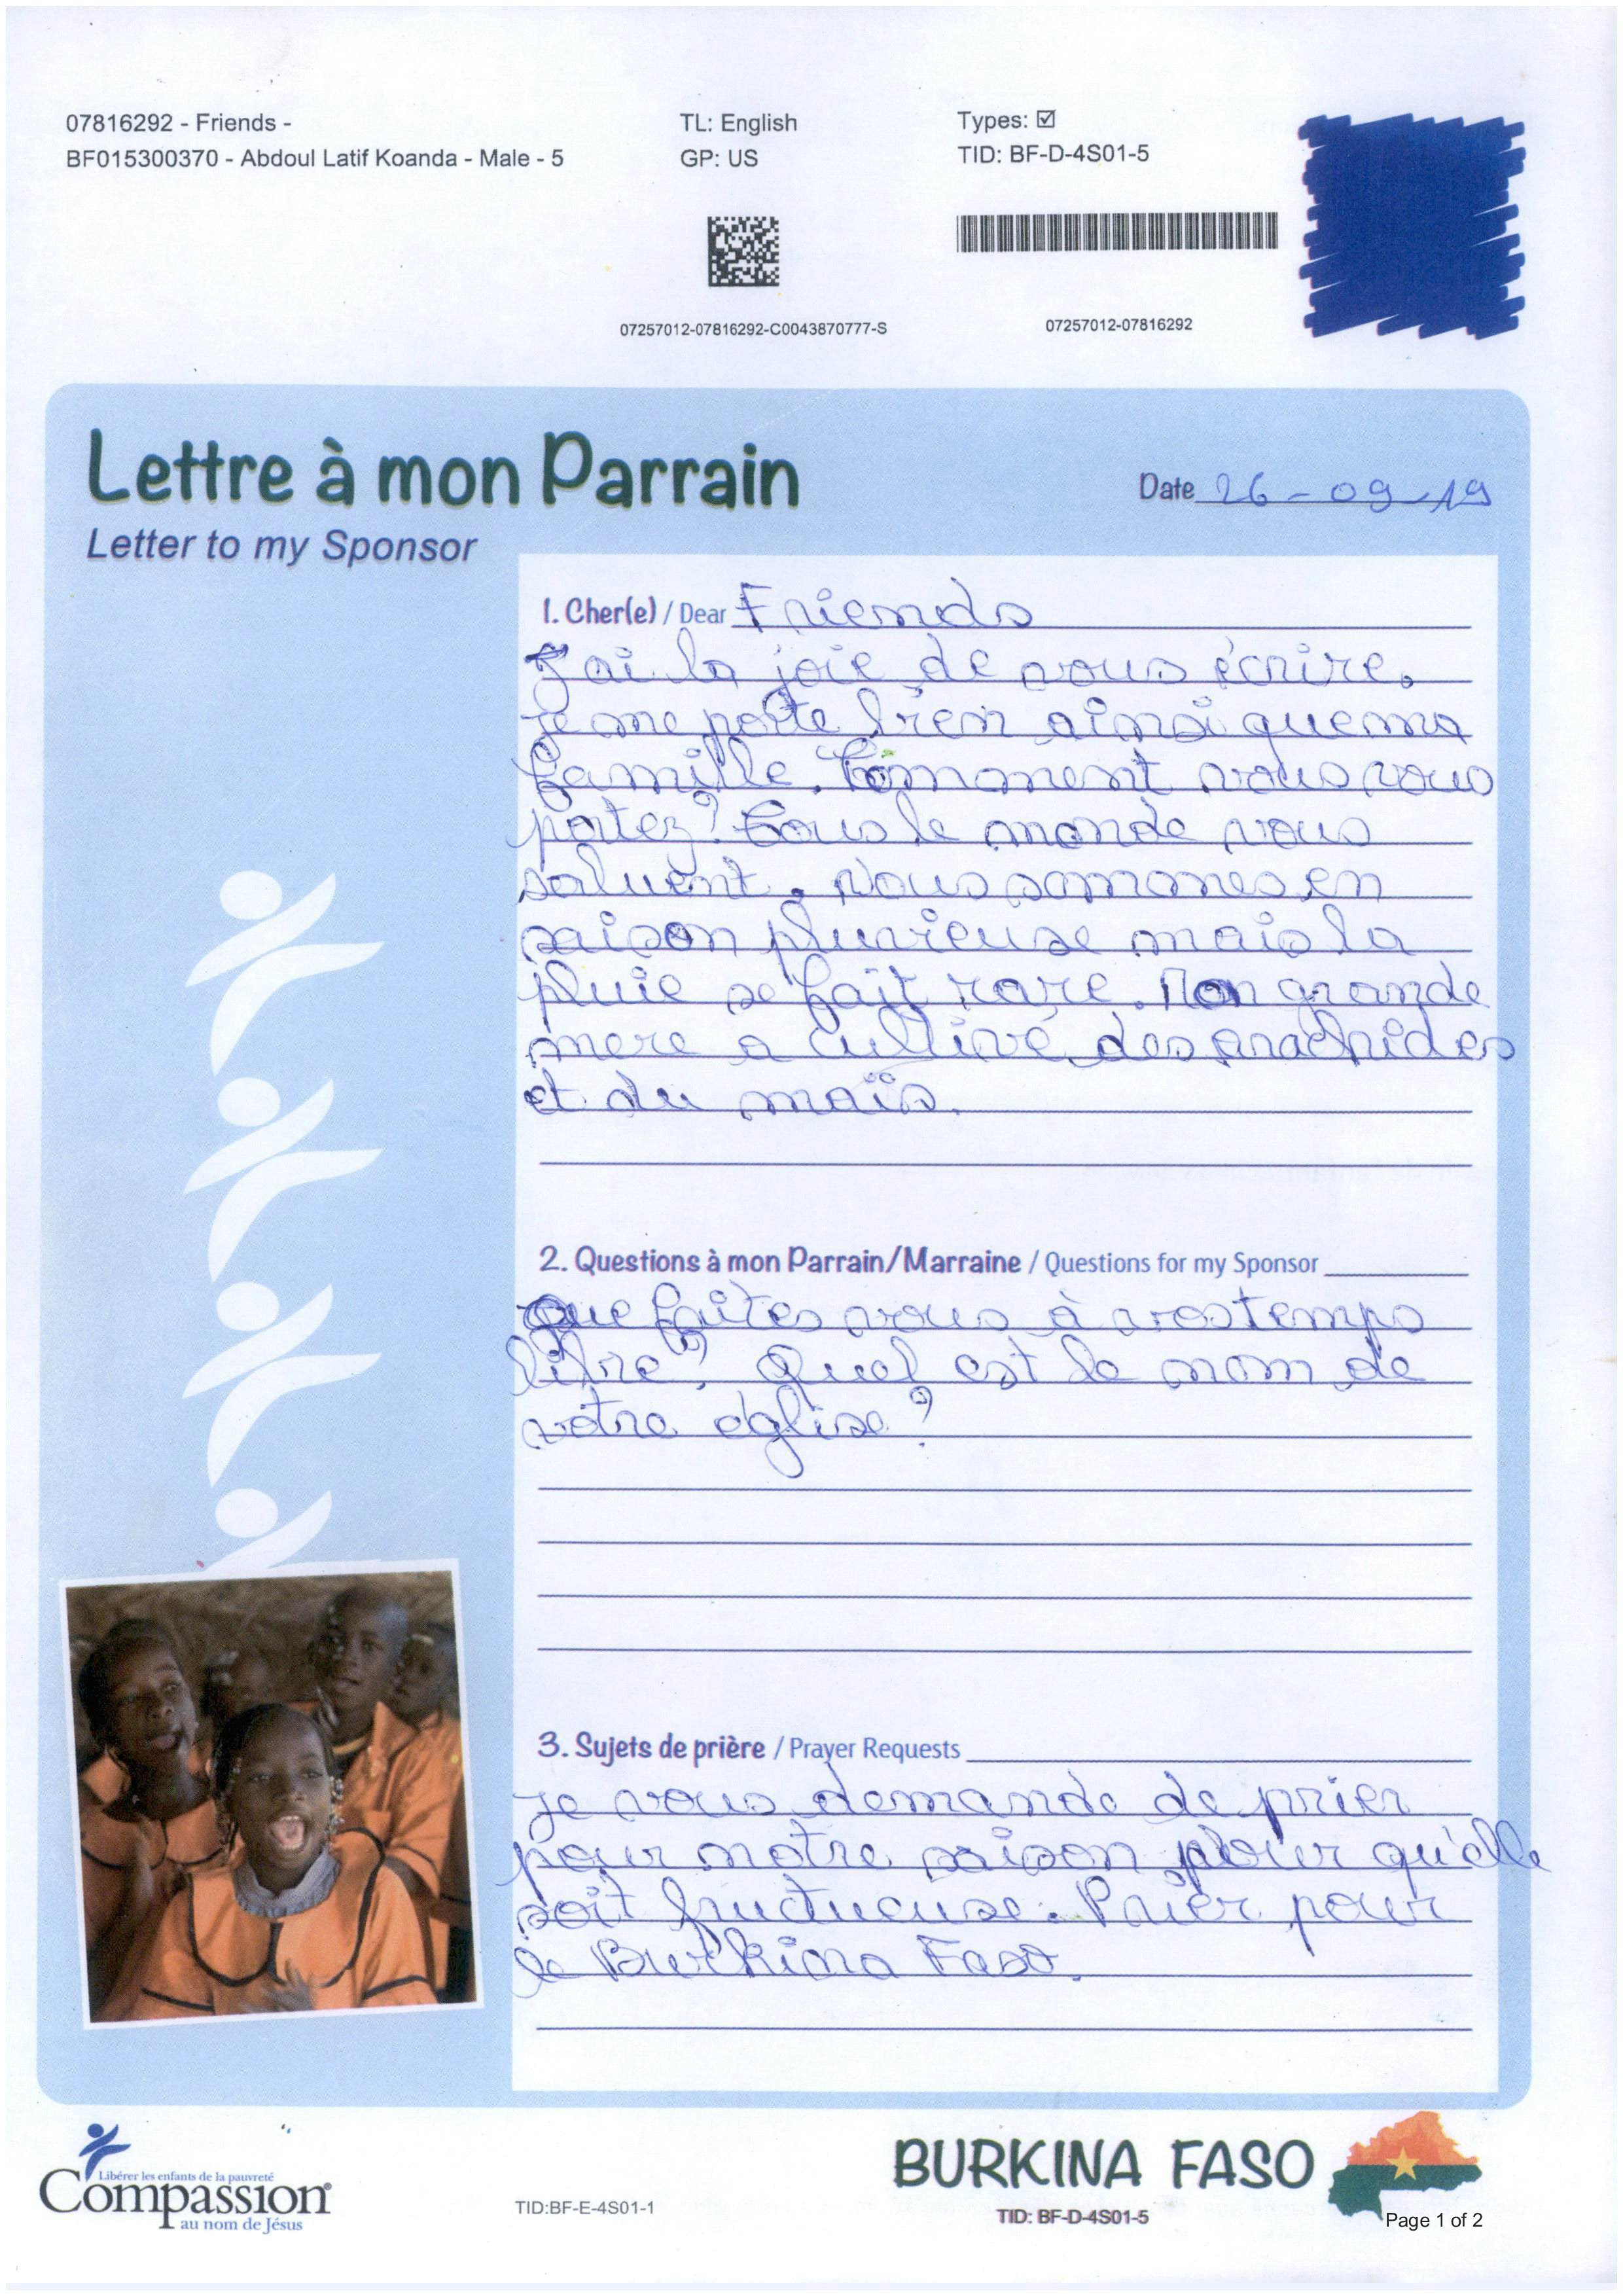 07816292 - Friends -
BF015300370 - Abdoul Latif Koanda - Male - 5
TL: English
GP: US
Types: ☑
TID: BF-D-4S01-5
07257012-07816292-C0043870777-S
07257012-07816292
Lettre à mon Parrain
Letter to my Sponsor
Date 26-09-19
1. Cher(e) / Dear Friends
J'ai la joie de vous écrire.
je me porte bien ainsi que ma
famille. Comment vous vous
portez? Tous le monde vous
saluent. Nous sommes en
saison pluvieuse mais la
pluie se fait rare. Mon grande
mere a cultivé des arachides
et du maïs.
2. Questions à mon Parrain/Marraine / Questions for my Sponsor
Que faites vous à vos temps
libre? Quel est le nom de
votre église?
3. Sujets de prière / Prayer Requests
je vous demande de prier
pour notre saison pour qu'elle
soit fructueuse. Prier pour
le Burkina Faso.
Libérer les enfants de la pauvreté
Compassion
au nom de Jésus
TID:BF-E-4S01-1
BURKINA FASO
TID: BF-D-4S01-5
Page 1 of 2